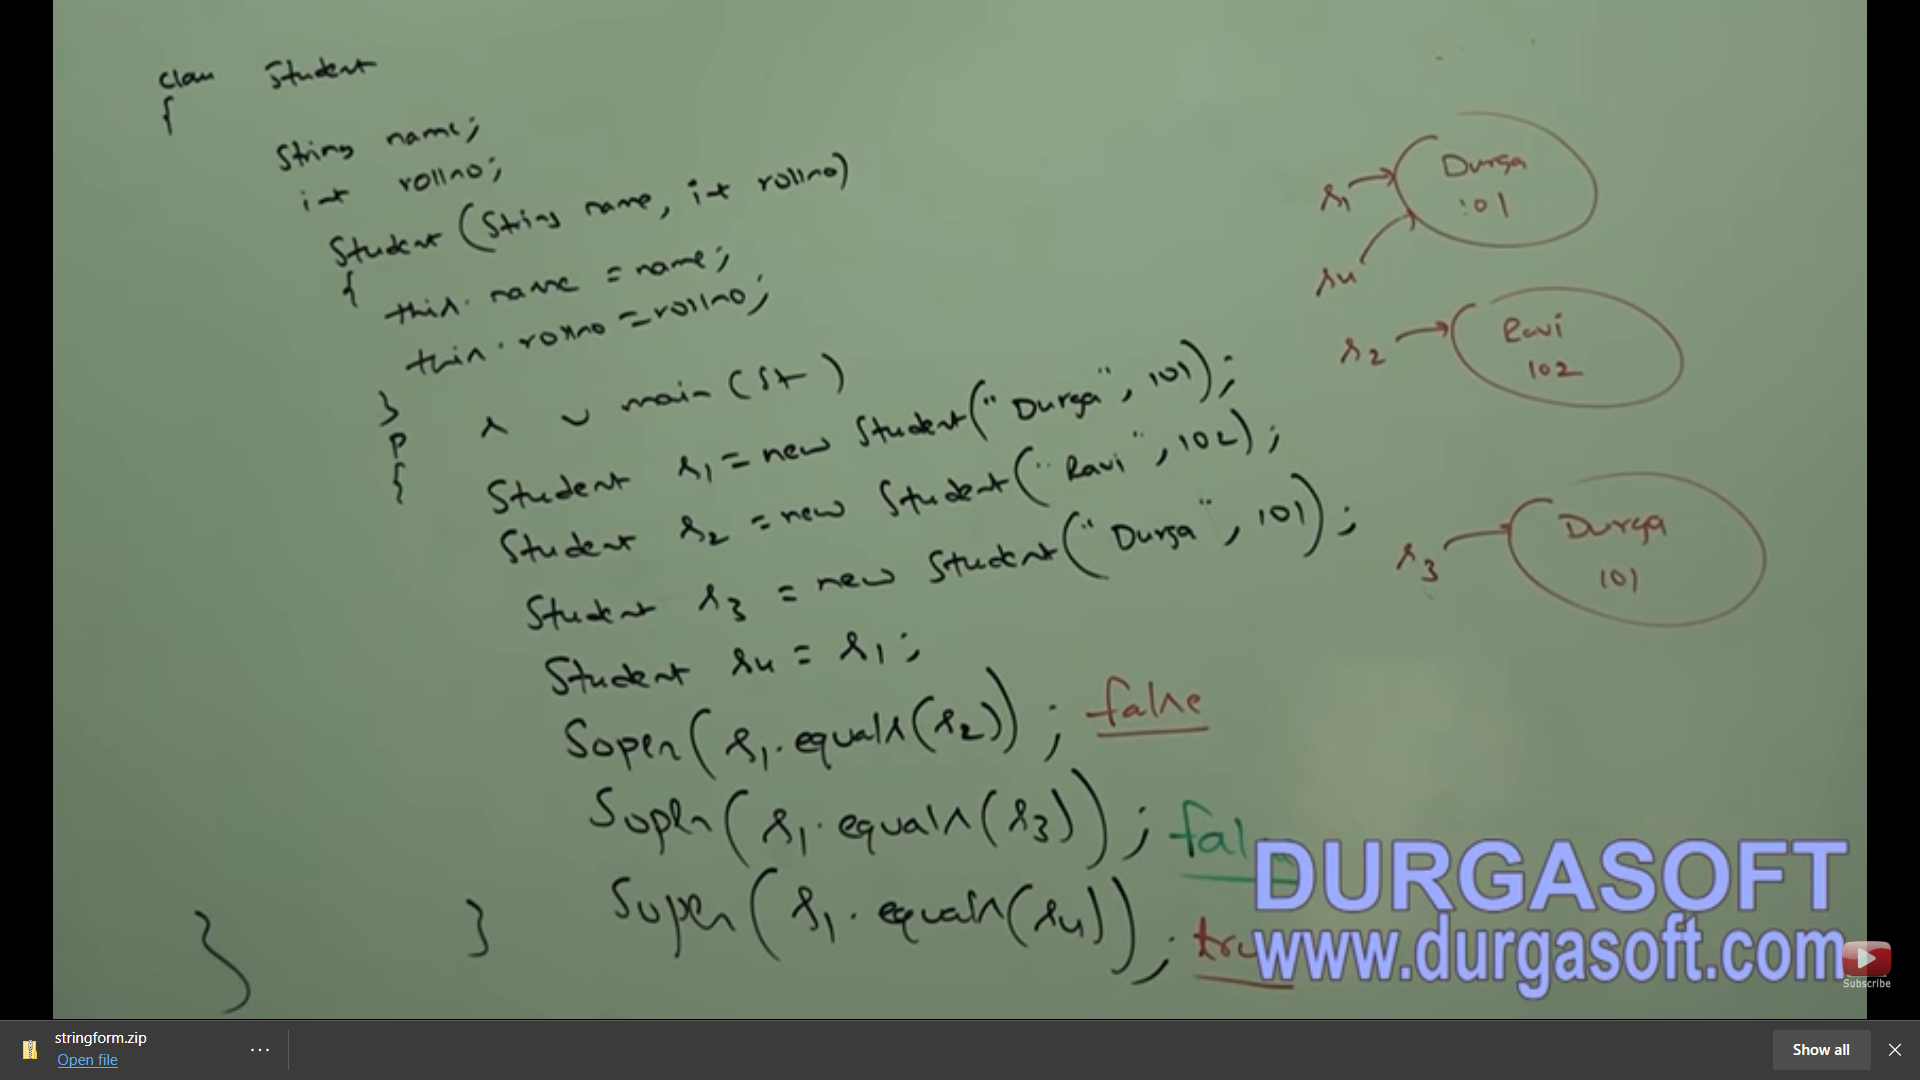 class Student
{
String name;
int rollno;
Student (String name, int rollno)
{
this.name = name;
this.rollno = rollno;
}
P s v main (St )
{
Student s1 = new Student("Durga", 101);
Student s2 = new Student("Ravi", 102);
Student s3 = new Student("Durga", 101);
Student s4 = s1;
Sopln(s1.equals(s2)); false
Sopln(s1.equals(s3)); fal
Sopln(s1.equals(s4)); tru
}
}
s1 Durga
101
s4
s2 Ravi
102
s3 Durga
101
DURGASOFT
www.durgasoft.com
Subscribe
stringform.zip
Open file
...
Show all